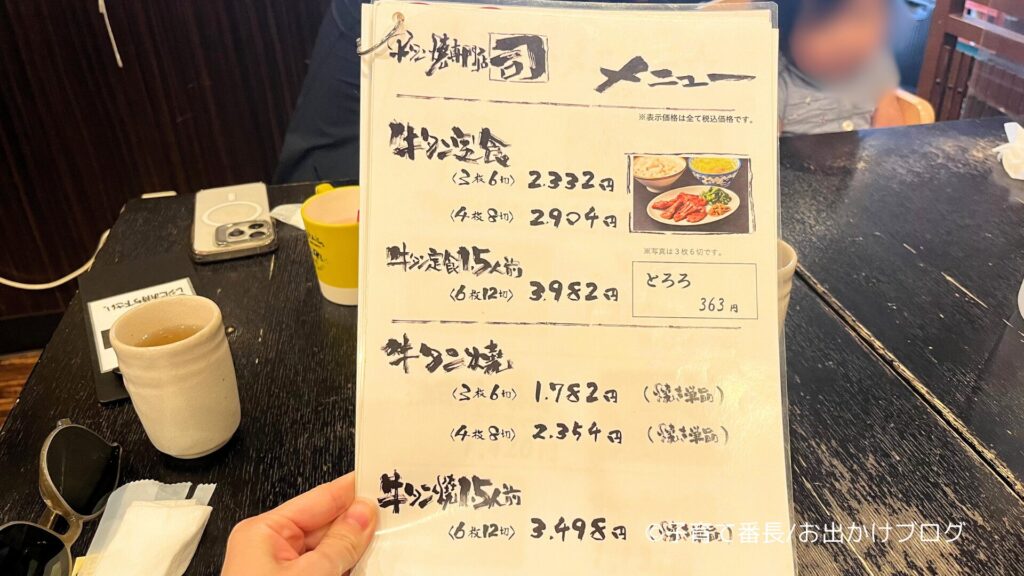 牛タン焼専門店 司
メニュー
※表示価格は全て税込価格です。
牛タン定食
〈3枚6切〉 2.332円
〈4枚8切〉 2.904円
※写真は3枚6切です。
牛タン定食1.5人前
〈6枚12切〉 3.982円
とろろ
363円
牛タン焼
〈3枚6切〉 1.782円 (焼き単品)
〈4枚8切〉 2.354円 (焼き単品)
牛タン焼1.5人前
〈6枚12切〉 3.498円
©子育て番長/お出かけブログ